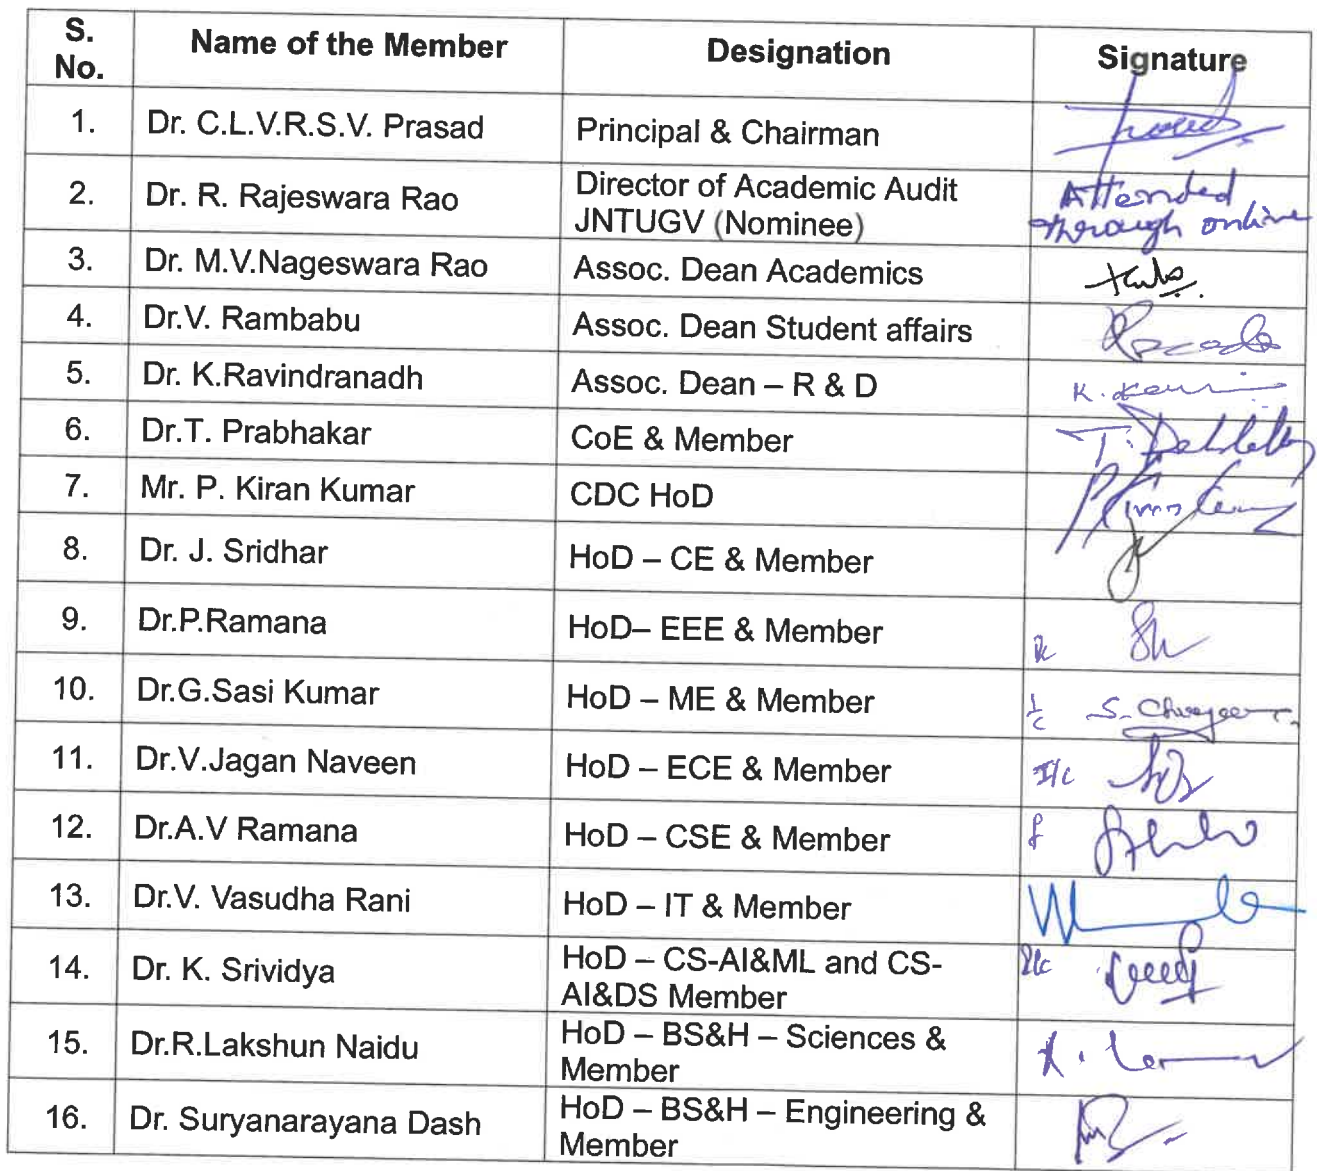 S. No. Name of the Member Designation Signature
1. Dr. C.L.V.R.S.V. Prasad Principal & Chairman
2. Dr. R. Rajeswara Rao Director of Academic Audit Attended
JNTUGV (Nominee) through online
3. Dr. M.V.Nageswara Rao Assoc. Dean Academics
4. Dr.V. Rambabu Assoc. Dean Student affairs
5. Dr. K.Ravindranadh Assoc. Dean – R & D K.
6. Dr.T. Prabhakar CoE & Member T.
7. Mr. P. Kiran Kumar CDC HoD
8. Dr. J. Sridhar HoD – CE & Member
9. Dr.P.Ramana HoD– EEE & Member
10. Dr.G.Sasi Kumar HoD – ME & Member S.
11. Dr.V.Jagan Naveen HoD – ECE & Member I/c
12. Dr.A.V Ramana HoD – CSE & Member
13. Dr.V. Vasudha Rani HoD – IT & Member
14. Dr. K. Srividya HoD – CS-AI&ML and CS-
AI&DS Member
15. Dr.R.Lakshun Naidu HoD – BS&H – Sciences &
Member
16. Dr. Suryanarayana Dash HoD – BS&H – Engineering &
Member